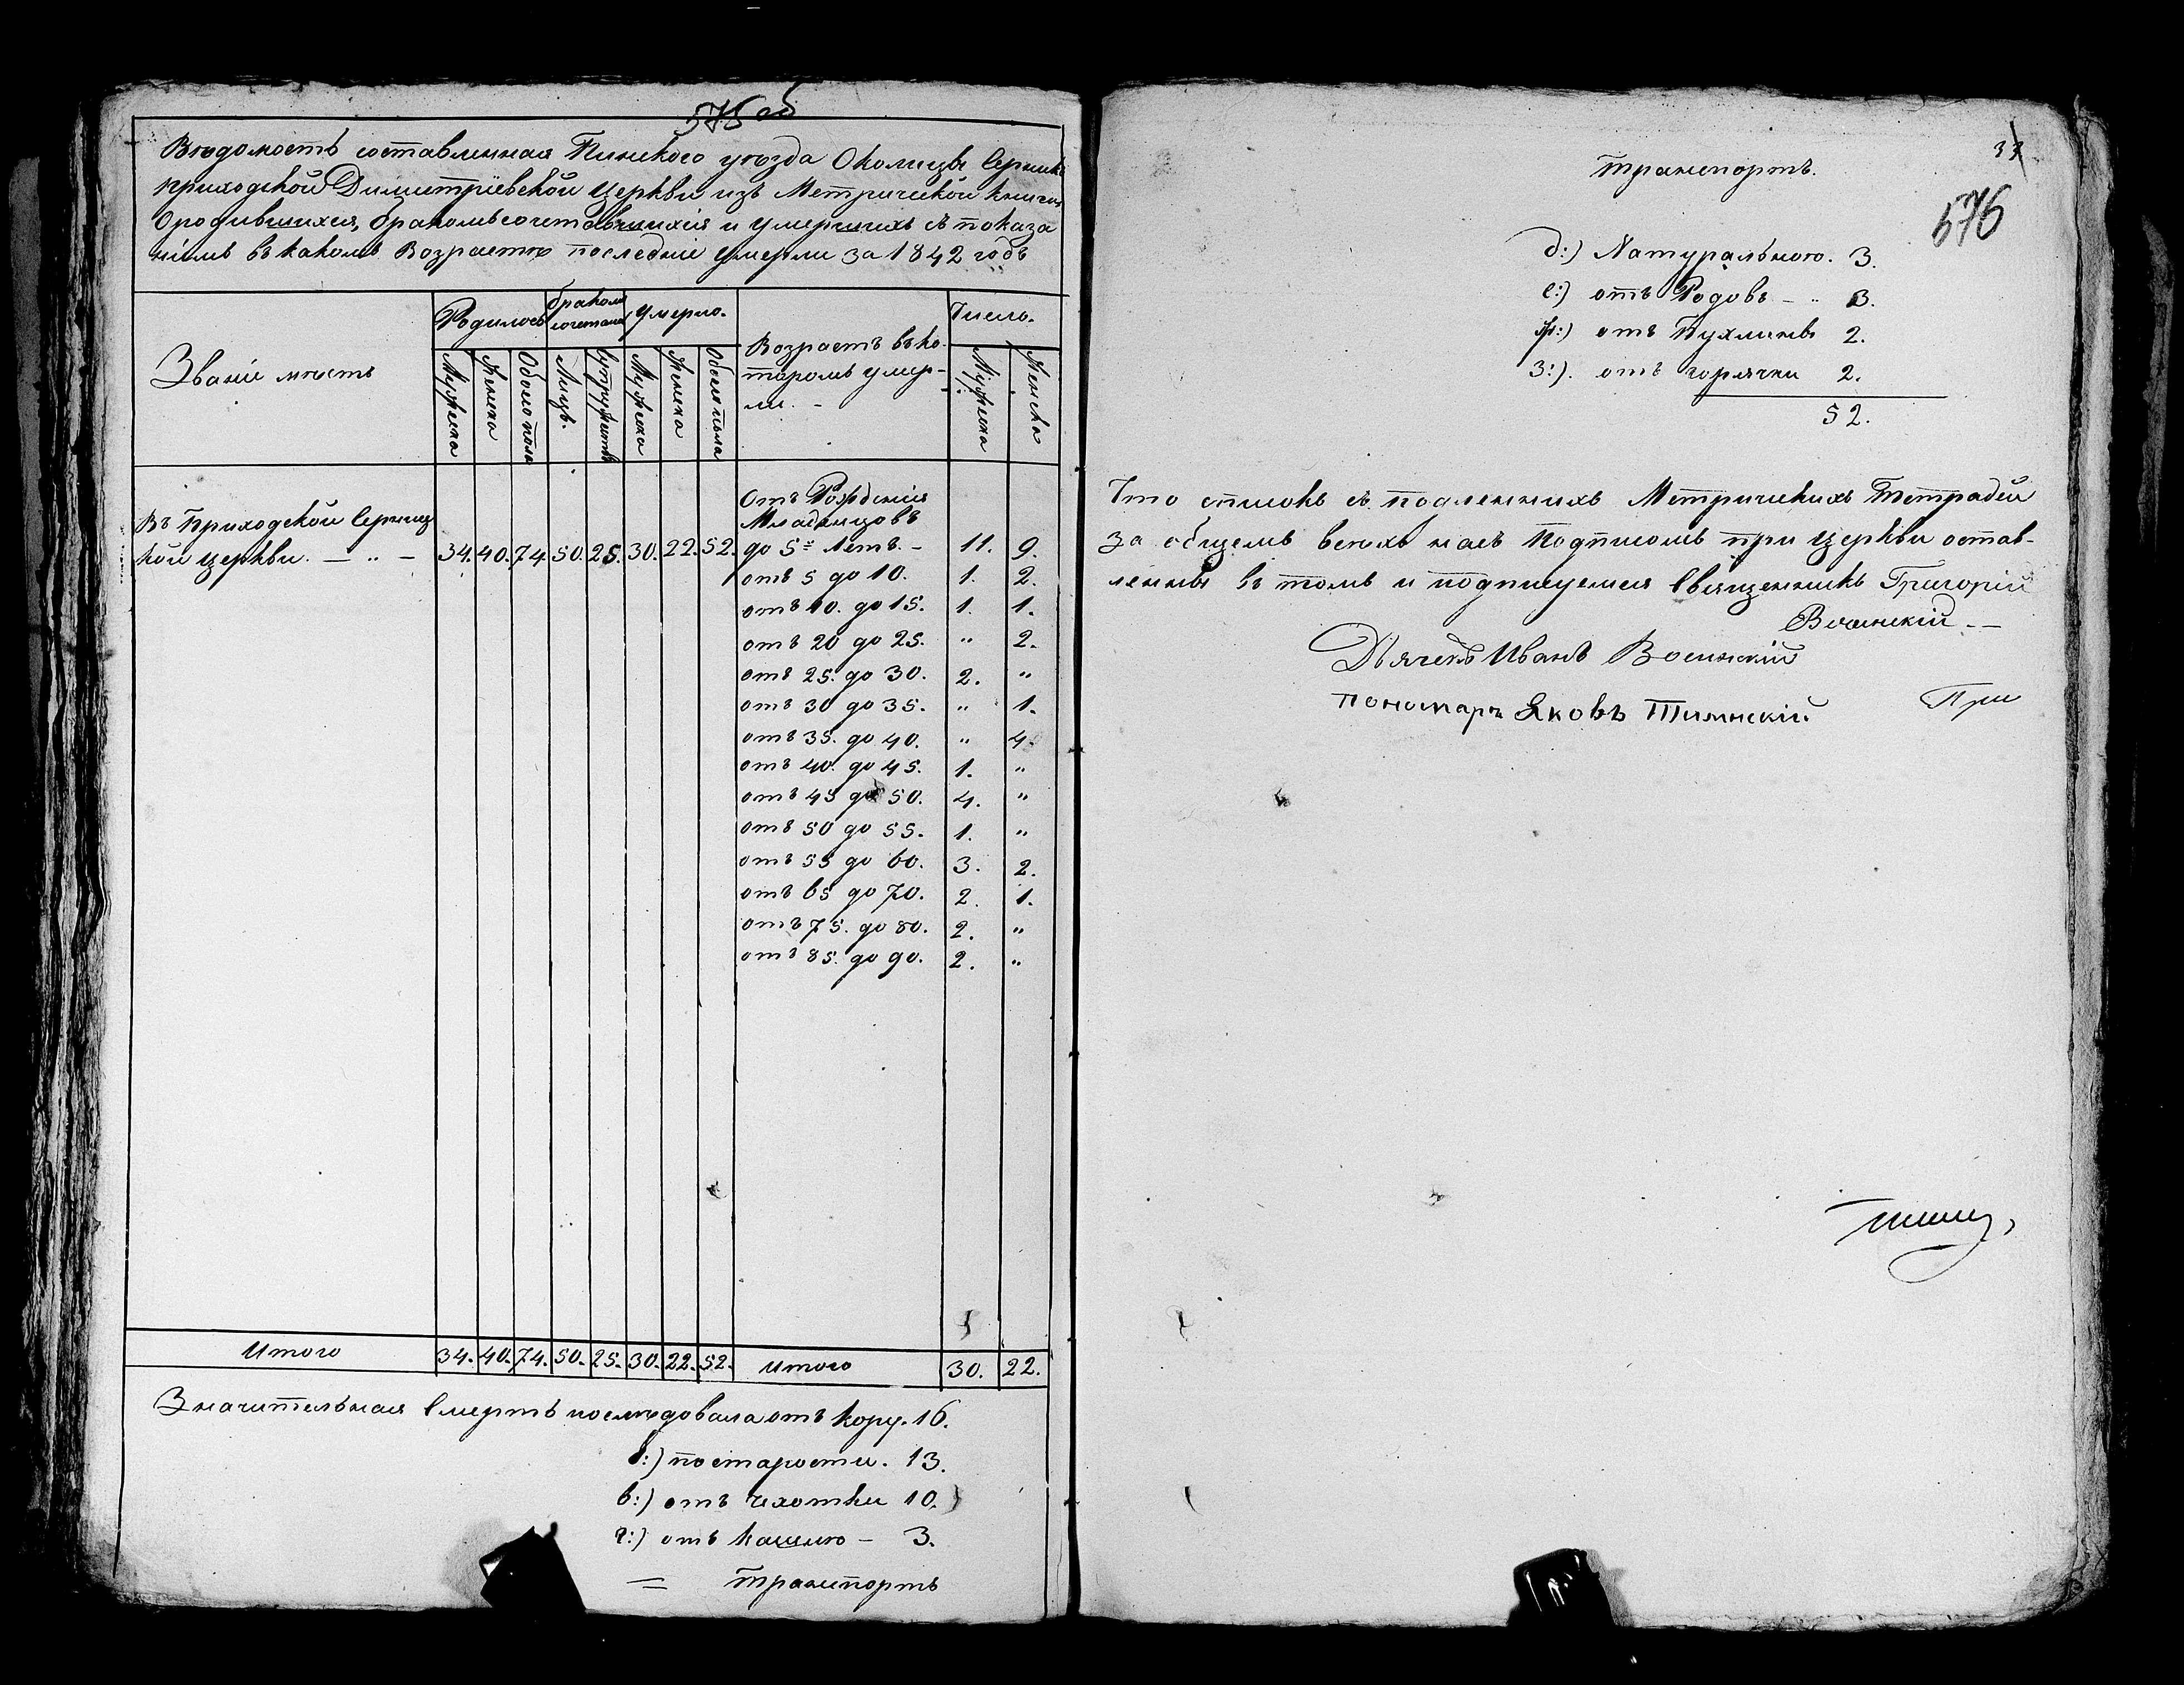 575 об
Вѣдомость составленная Пинского уѣзда Околицы Серник
приходской Димитріевской Церкви изъ Метрической книги
Ородившихся, бракомъ сочетавшихся и умершихъ съ показа
ніемъ въ какомъ Возрастѣ последніе умерли за 1842 годъ
Званіе мѣстъ
Родилось
бракомъ сочетан
Умерло.
Возрастъ въ ко-
торомъ умер-
ли. -
Число.
Мужеска
Женска
Обоего пола
Лицъ.
супружествъ
Мужеска
Женска
Обоего пола
Мужеска
Женска
Въ Приходской Серниц
кой церкви. — „ — 34. 40. 74. 50. 25. 30. 22. 52.
Отъ Рожденія
Младенцовъ
до 5 = Летъ. - 11. 9.
отъ 5 до 10. 1. 2.
отъ 10. до 15. 1. 1.
отъ 20 до 25. „ 2.
отъ 25. до 30. 2. „
отъ 30 до 35. „ 1.
отъ 35. до 40. „ 4.
отъ 40. до 45. 1. „
отъ 45 до 50. 4. „
отъ 50 до 55. 1. „
отъ 55 до 60. 3. 2.
отъ 65 до 70. 2. 1.
отъ 75. до 80. 2. „
отъ 85. до 90. 2. „
Итого 34. 40. 74. 50. 25. 30. 22. 52. Итого 30. 22.
Значительная Смерть последовала отъ Кору. 16.
б:) по старости. 13.
в:) отъ чхотки 10.
г:) отъ Кашлю — 3.
= транспортъ
33
576
транспортъ.
д:) Натуральною. 3.
е:) отъ Родовъ — „ 3.
ж:) отъ Пухлины 2.
з:). отъ горячки 2.
52.
Что списокъ съ подленныхъ Метрическихъ Тетрадей
за общемъ всехъ насъ Подписомъ при церкви остав-
ленны въ томъ и подпишемся Священникъ Григорій
Воинскій. —
Дьячекъ Иванъ Воинскій
Пономарь Яковъ Тиминскій.
При